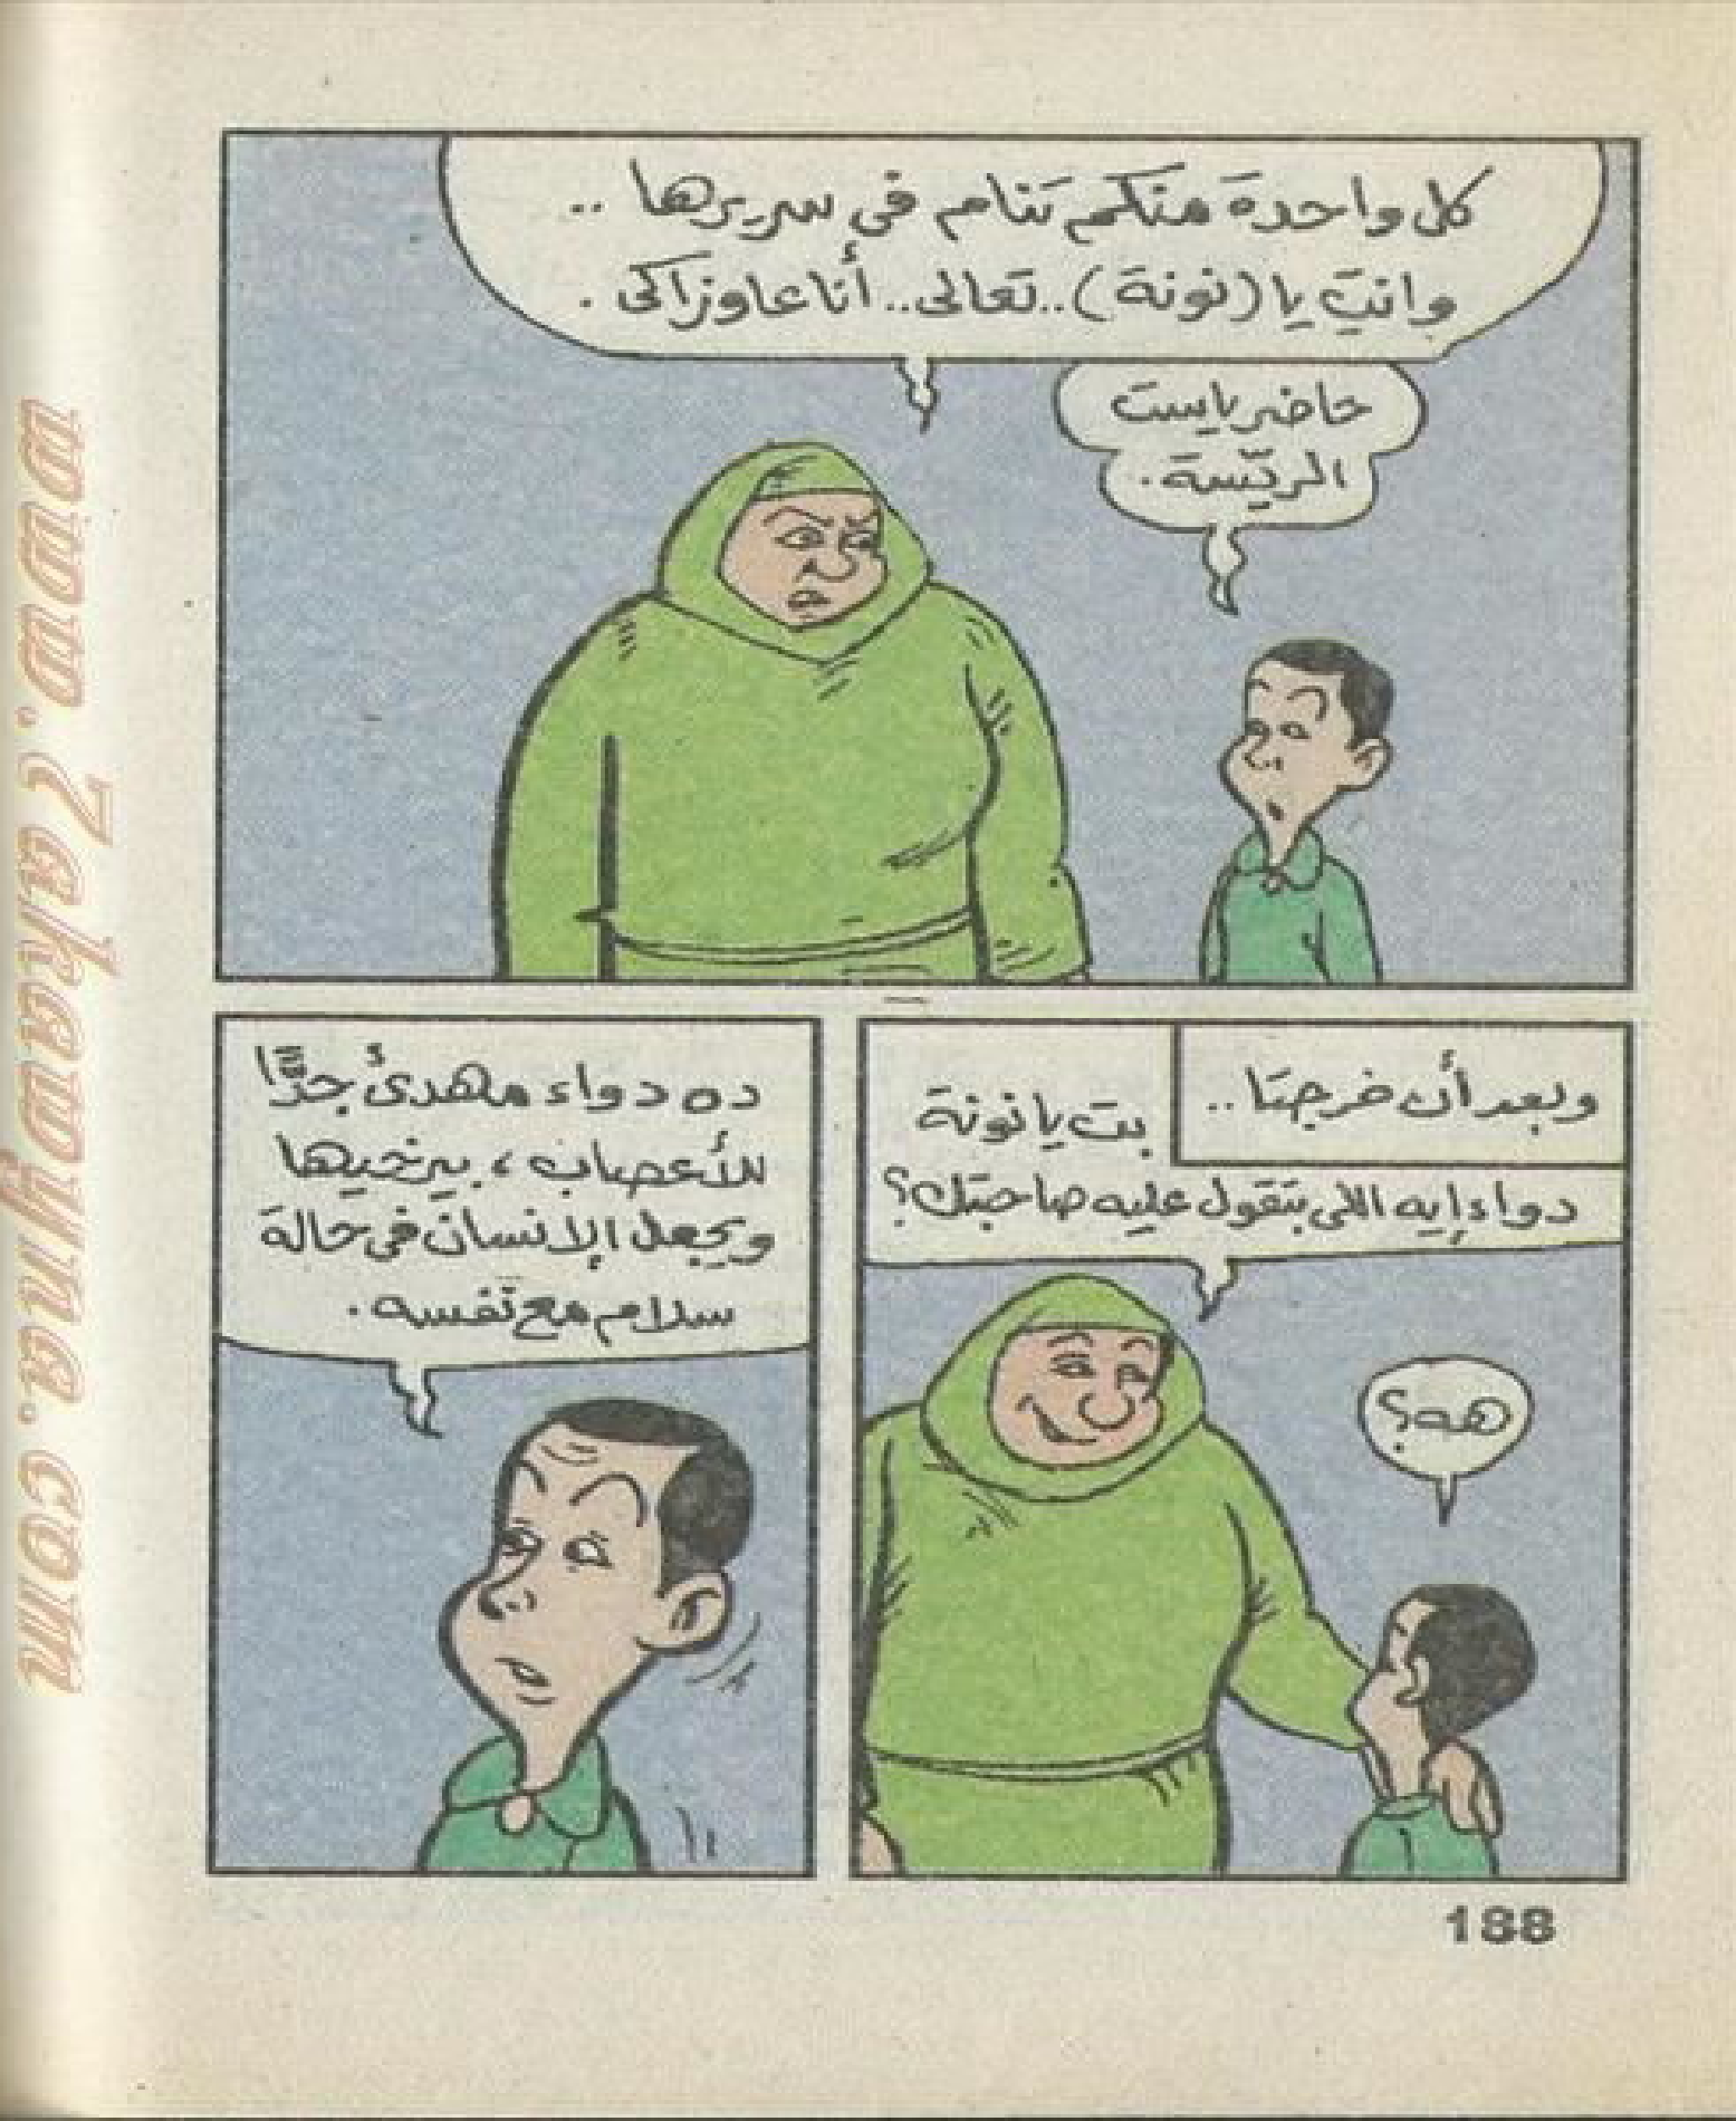 كل واحدة منكم تنام فى سريرها ..
وانتِ يا (نونة) .. تعالى .. أنا عاوزاكى .
حاضر ياست
الريّسة .
وبعد أن خرجتا ..
بت يا نونة
دواء إيه اللى بتقول عليه صاحبتك؟
هه؟
ده دواء مهدئ جدًّا
للأعصاب ، بيرخيها
ويجعل الإنسان فى حالة
سلام مع نفسه .
188
www.7akawyna.com